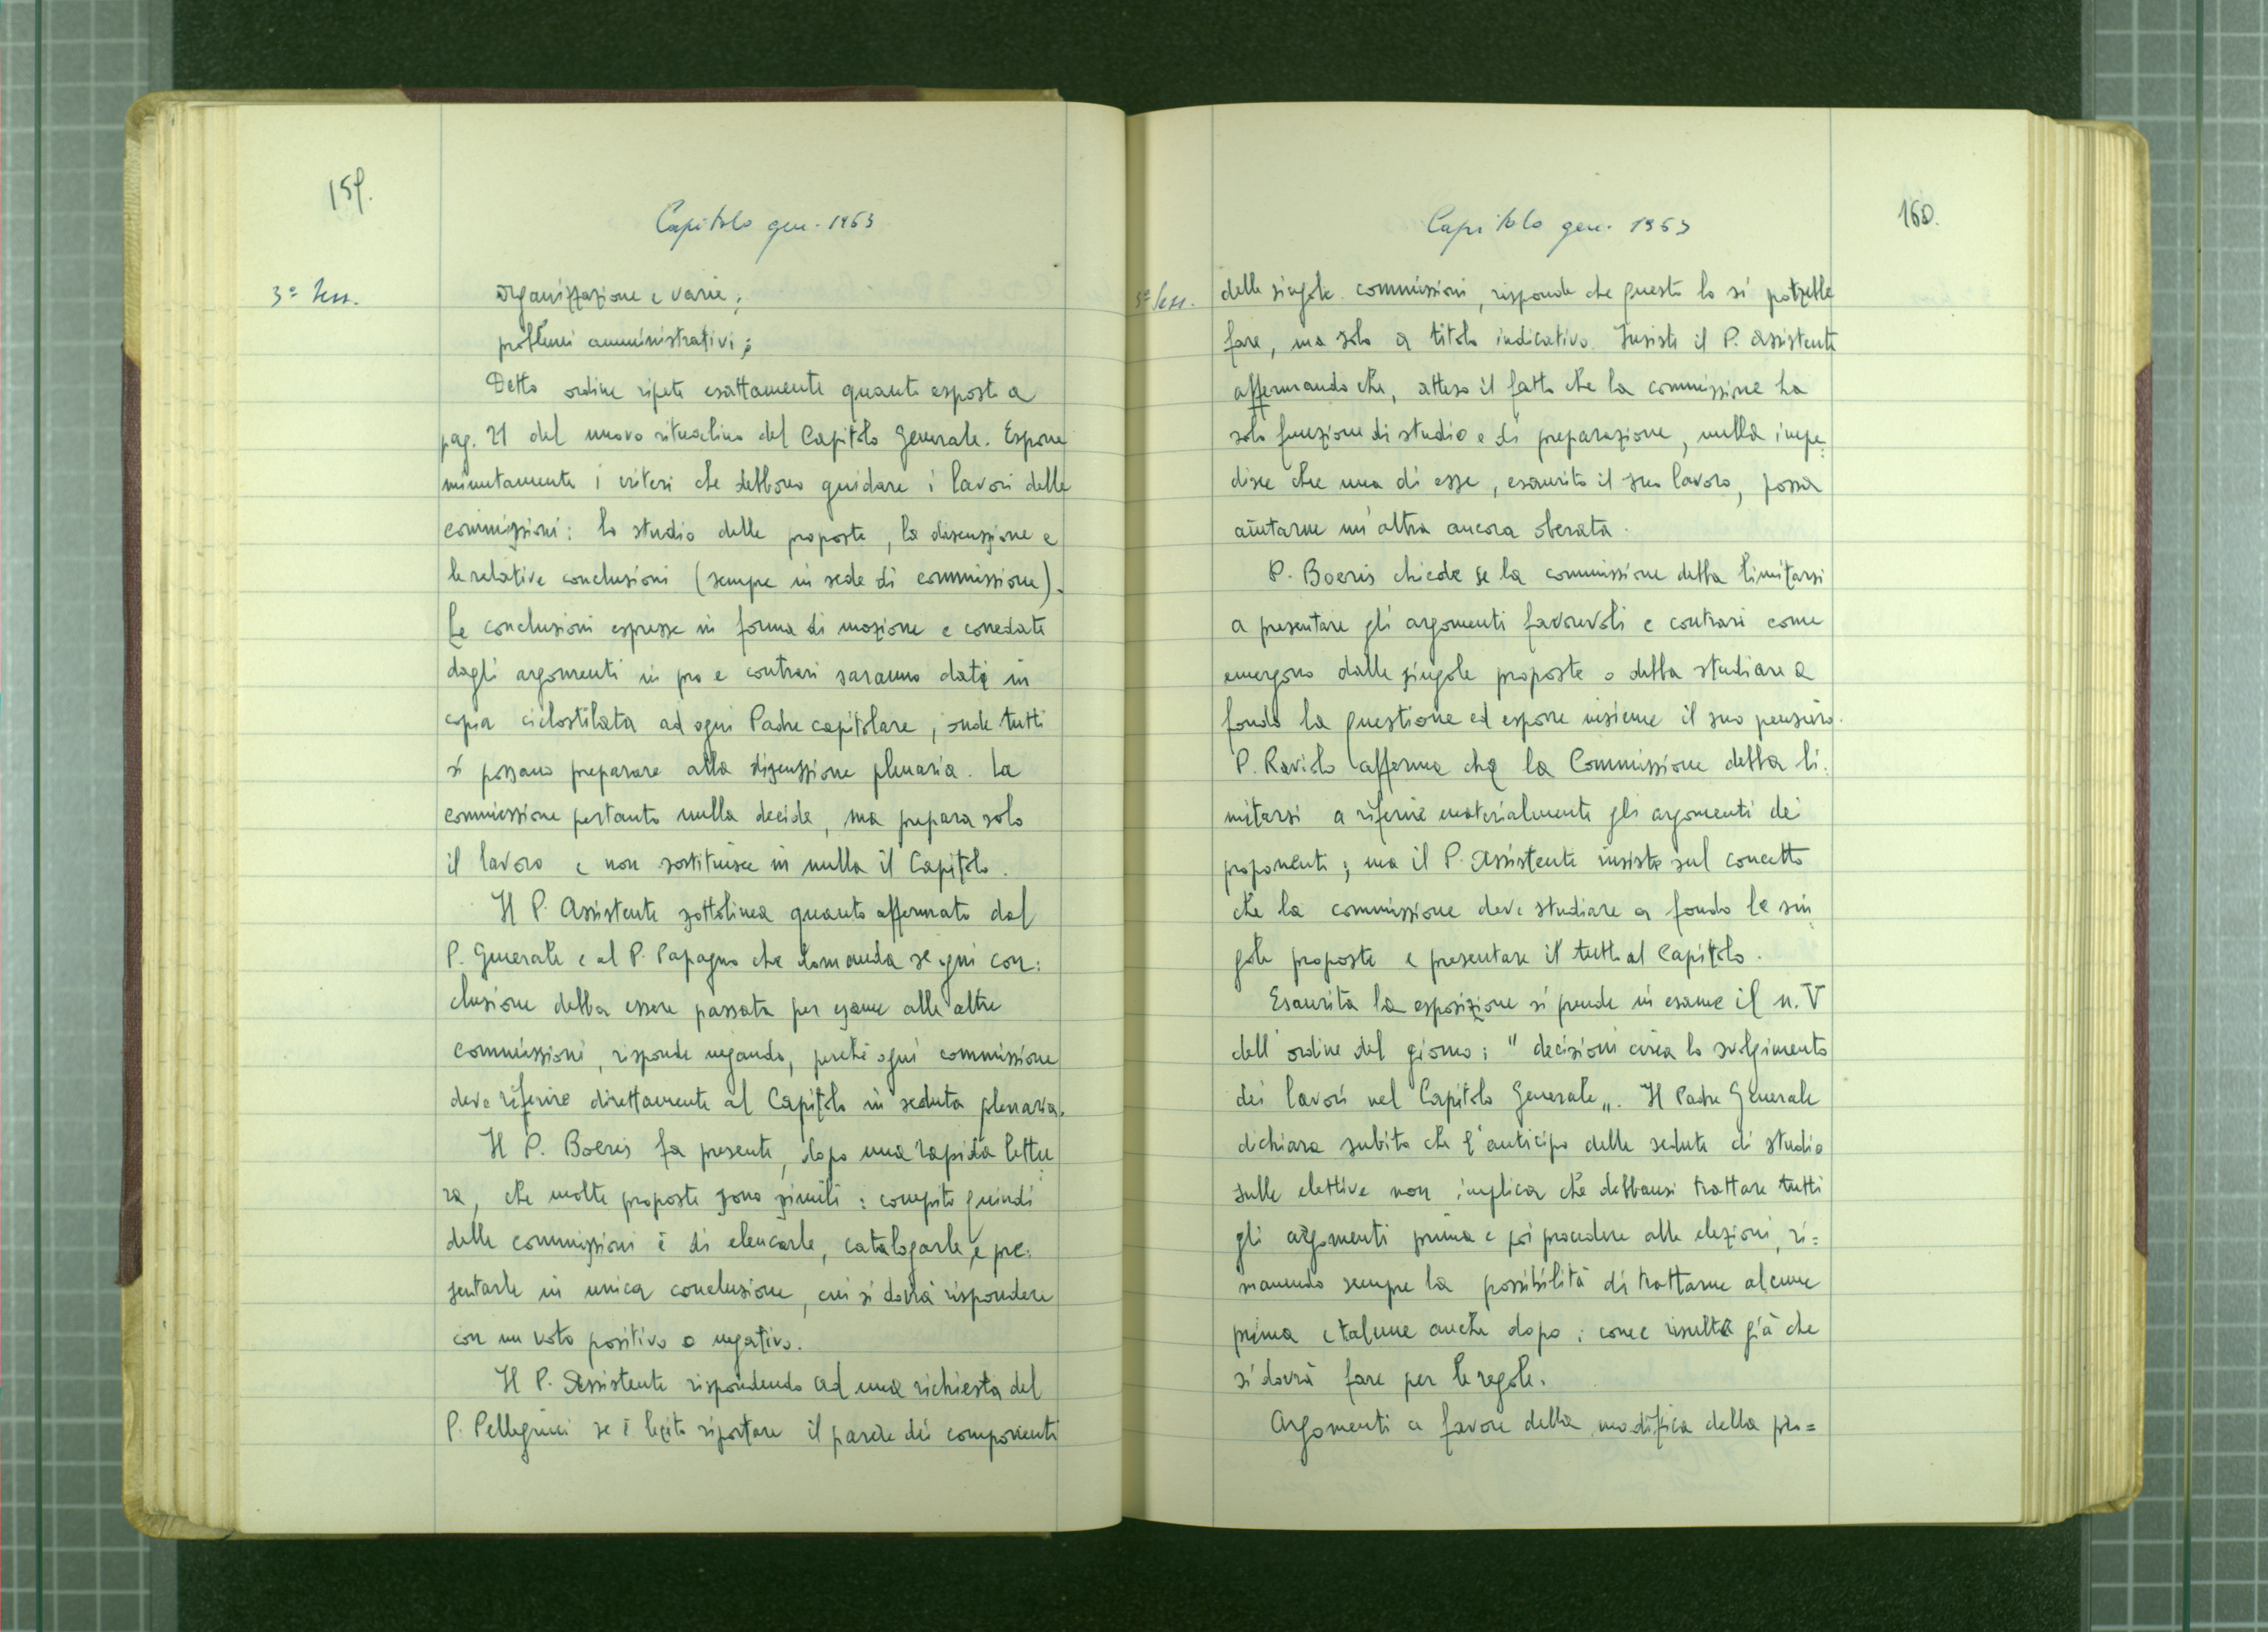 159.
Capitolo gen. 1963
3ª Sess.
organizzazione e varie;
problemi amministrativi;
Detto ordine ripete esattamente quanto esposto a
pag. 21 del nuovo ritualino del Capitolo Generale. Espone
minutamente i criteri che debbono guidare i lavori delle
commissioni: lo studio delle proposte, la discussione e
le relative conclusioni (sempre in sede di commissione).
Le conclusioni espresse in forma di mozione e corredate
dagli argomenti in pro e contrari saranno date in
copia ciclostilata ad ogni Padre capitolare, onde tutti
si possano preparare alla discussione plenaria. La
commissione pertanto nulla decide, ma prepara solo
il lavoro e non sostituisce in nulla il Capitolo.
Il P. Assistente sottolinea quanto affermato dal
P. Generale e al P. Papagno che domanda se ogni con:
clusione debba essere passata per esame alle altre
commissioni, risponde negando, perché ogni commissione
deve riferire direttamente al Capitolo in seduta plenaria.
Il P. Boeris fa presente, dopo una rapida lettu:
ra, che molte proposte sono simili: compito quindi
delle commissioni è di elencarle, catalogarle, e pre:
sentarle in unica conclusione, cui si dovrà rispondere
con un voto positivo o negativo.
Il P. Assistente rispondendo ad una richiesta del
P. Pellegrini se è lecito riportare il parere dei componenti
160.
Capitolo gen. 1963
3ª Sess.
delle singole commissioni, risponde che questo lo si potrebbe
fare, ma solo a titolo indicativo. Insiste il P. Assistente
affermando che, atteso il fatto che la commissione ha
solo funzione di studio e di preparazione, nulla impe:
disce che una di esse, esaurito il suo lavoro, possa
aiutarne un'altra ancora oberata.
P. Boeris chiede se la commissione debba limitarsi
a presentare gli argomenti favorevoli e contrari come
emergono dalle singole proposte o debba studiare a
fondo la questione ed esporre insieme il suo pensiero.
P. Raviolo afferma che la Commissione debba li:
mitarsi a riferire materialmente gli argomenti dei
proponenti; ma il P. Assistente insiste sul concetto
che la commissione deve studiare a fondo le sin:
gole proposte e presentare il tutto al Capitolo.
Esaurita la esposizione si prende in esame il n. V
dell'ordine del giorno: "decisioni circa lo svolgimento
dei lavori nel Capitolo Generale„. Il Padre Generale
dichiara subito che l'anticipo delle sedute di studio
sulle elettive non implica che debbansi trattare tutti
gli argomenti prima e poi procedere alle elezioni, ri=
manendo sempre la possibilità di trattarne alcune
prima e talune anche dopo; come risulta già che
si dovrà fare per le regole.
Argomenti a favore della modifica della pro=